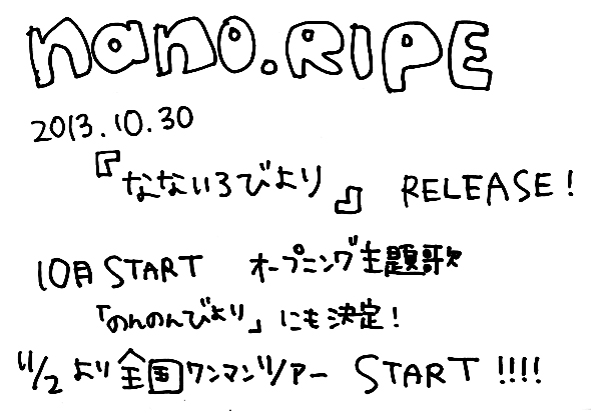 nano.RIPE
2013.10.30
『なないろびより』 RELEASE!
10月START オープニング主題歌
「のんのんびより」にも決定!
11/2より全国ワンマンツアー START!!!!